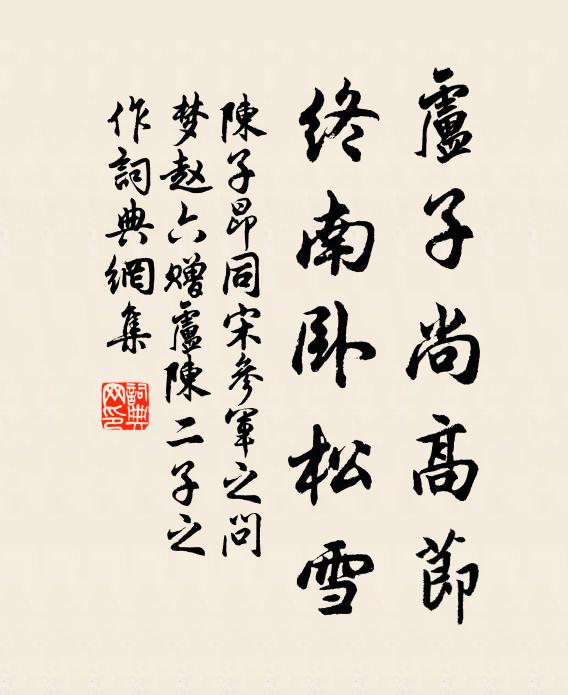 盧子尚高節
終南卧松雪
陳子昂同宋參軍之問
梦赵六赠盧陳二子之
作詞典網集
詞典
网印